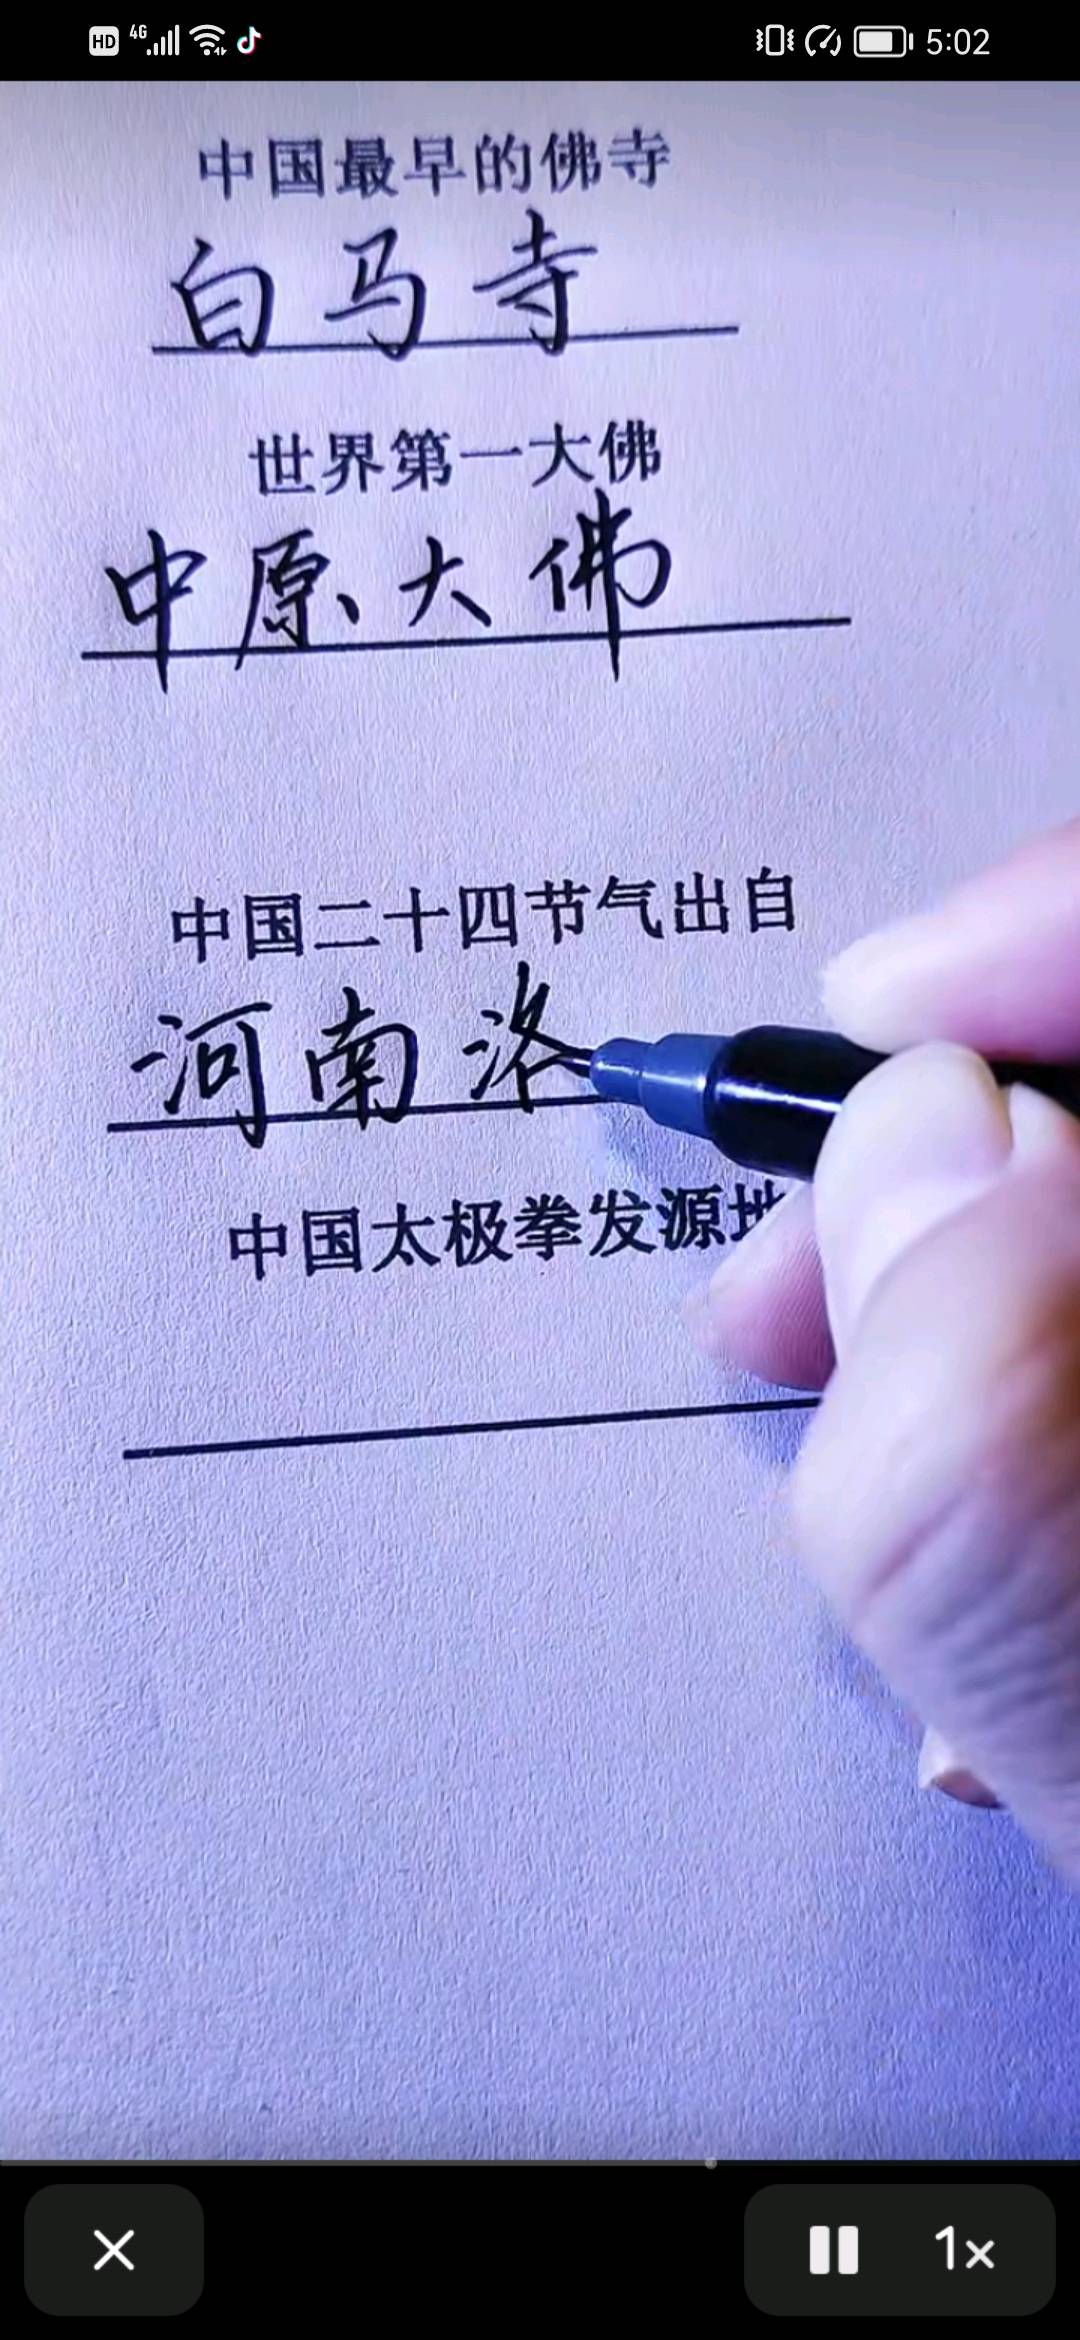 HD 4G 5:02
中国最早的佛寺
白马寺
世界第一大佛
中原大佛
中国二十四节气出自
河南洛
中国太极拳发源地
1×